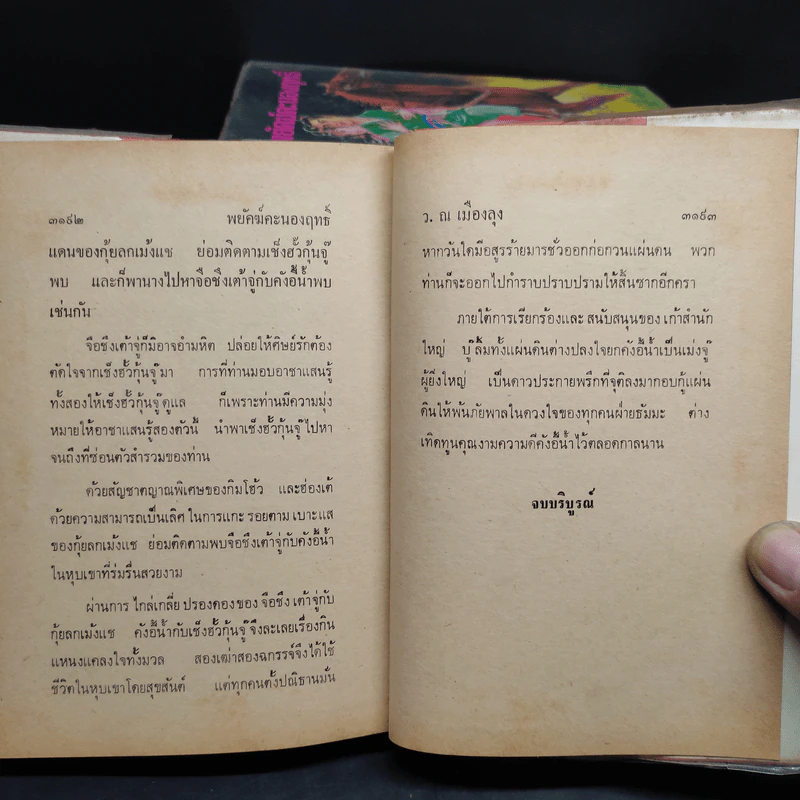 ๓๑๙๒ พยัคฆ์คะนองฤทธิ์
แดนของกุ้ยลกเม้งแช ย่อมติดตามเช็งฮั้วกุ้นจู๊
พบ และก็พานางไปหาจือชึงเต้าจู่กับคังอี้น้ำพบ
เช่นกัน
จือชึงเต้าจู่ก็มิอาจอำมหิต ปล่อยให้ศิษย์รักต้อง
ตัดใจจากเช็งฮั้วกุ้นจู๊มา การที่ท่านมอบอาชาแสนรู้
ทั้งสองให้เช็งฮั้วกุ้นจู๊ดูแล ก็เพราะท่านมีความมุ่ง
หมายให้อาชาแสนรู้สองตัวนี้ นำพาเช็งฮั้วกุ้นจู๊ไปหา
จนถึงที่ซ่อนตัวสำรวมของท่าน
ด้วยสัญชาตญาณพิเศษของกิมโฮ้ว และฮ่องเต้
ด้วยความสามารถเป็นเลิศ ในการแกะ รอยตาม เบาะแส
ของกุ้ยลกเม้งแช ย่อมติดตามพบจือชึงเต้าจู่กับคังอี้น้ำ
ในหุบเขาที่ร่มรื่นสวยงาม
ผ่านการ ไกล่เกลี่ย ปรองดองของ จือชึง เต้าจู่กับ
กุ้ยลกเม้งแช คังอี้น้ำกับเช็งฮั้วกุ้นจู๊ จึงละเลยเรื่องกิน
แหนงแคลงใจทั้งมวล สองเฒ่าสองฉกรรจ์จึงได้ใช้
ชีวิตในหุบเขาโดยสุขสันต์ แต่ทุกคนตั้งปณิธานมั่น
ว. ณ เมืองลุง ๓๑๙๓
หากวันใดมีอสูรร้ายมารชั่วออกก่อกวนแผ่นดิน พวก
ท่านก็จะออกไปกำราบปราบปรามให้สิ้นซากอีกครา
ภายใต้การเรียกร้องและ สนับสนุนของ เก้าสำนัก
ใหญ่ บู๊ลิ้มทั้งแผ่นดินต่างปลงใจยกคังอี้น้ำเป็นเม่งจู๊
ผู้ยิ่งใหญ่ เป็นดาวประกายพรึกที่จุติลงมากอบกู้แผ่น
ดินให้พ้นภัยพาลในดวงใจของทุกคนฝ่ายธัมมะ ต่าง
เทิดทูนคุณงามความดีคังอี้น้ำไว้ตลอดกาลนาน
จบบริบูรณ์